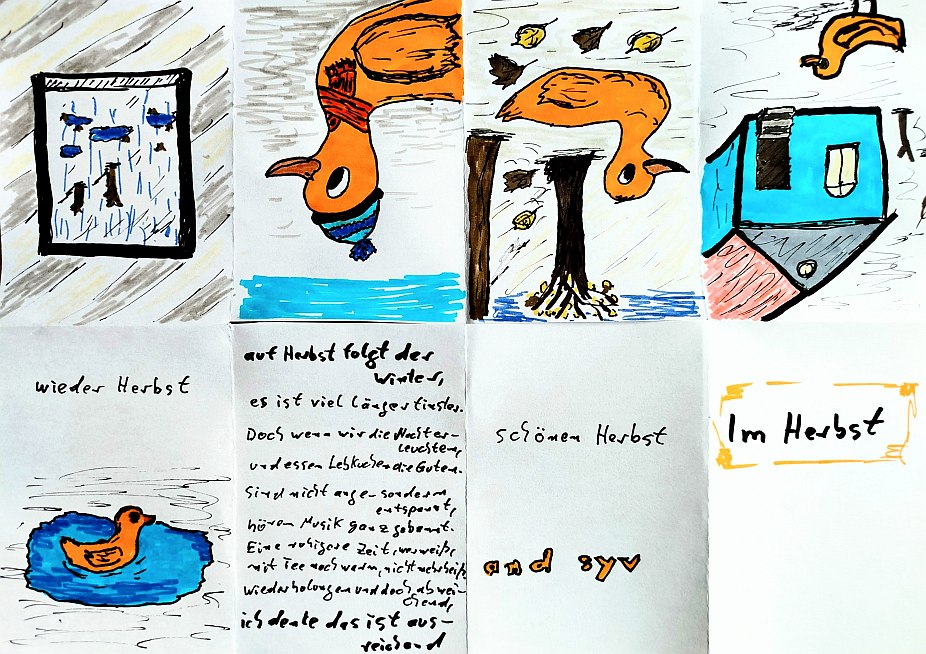 wieder Herbst
auf Herbst folgt der
Winter,
es ist viel länger finster.
Doch wenn wir die Nachter-
leuchten,
und essen Lebkuchen die Guten.
Sind nicht ange- sondern
entspannt,
hören Musik ganz gebannt.
Eine ruhigere Zeit, wer weiß,
mit Tee noch warm, nicht mehr heiß,
wiederholungen und doch abwei-
chend,
ich denke das ist aus-
reichend
schönen Herbst
and syv
Im Herbst